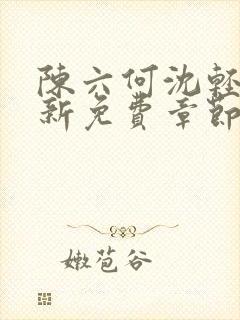 陳六何沈輕
新免費章節
嫩苞谷